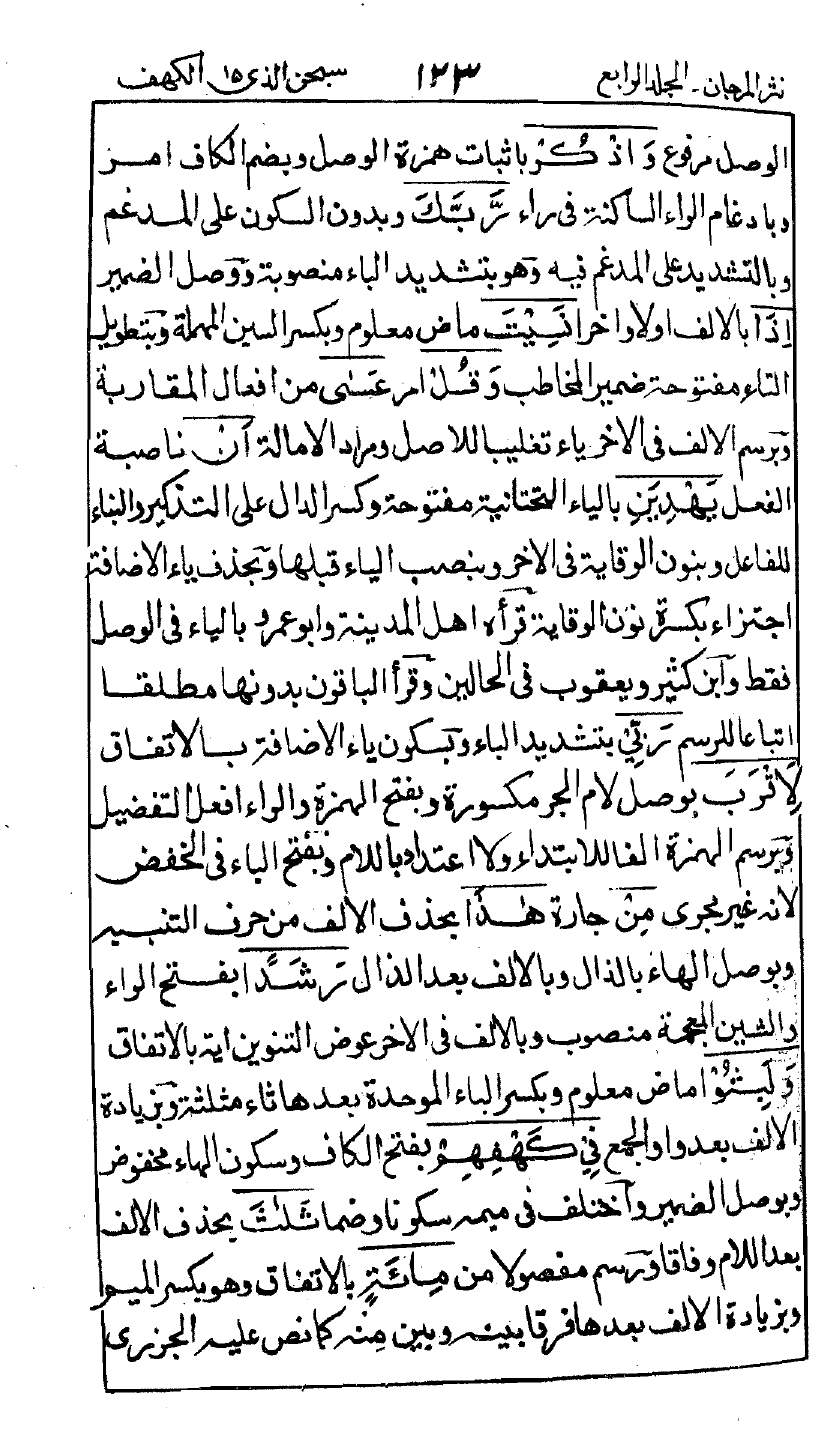 نثر المرجان - المجلد الرابع ١٢٣ سبحن الذى ١٥ الكهف
الوصل مرفوع وَاذْكُرْ باثبات همزة الوصل وبضم الكاف امر
وبادغام الراء الساكنة فى راء رَّبَّكَ وبدون السكون على المدغم
وبالتشديد على المدغم فيه وهو بتشديد الباء منصوبة ووصل الضمير
اِذَا بالالف اولا واخرا نَسِيْتَ ماض معلوم وبكسر السين المهملة وبتطويل
التاء مفتوحة ضمير المخاطب وَقُلْ امر عَسٰى من افعال المقاربة
وبرسم الالف فى الاخر ياء تغليبا للاصل ومراد الامالة اَنْ ناصبة
الفعل يَهْدِيَنِ بالياء التحتانية مفتوحة وكسر الدال على التذكير والبناء
للفاعل وبنون الوقاية فى الاخر وبنصب الياء قبلها وبحذف ياء الاضافة
اجتزاء بكسرة نون الوقاية قرأه اهل المدينة وابو عمرو بالياء فى الوصل
فقط وابن كثير ويعقوب فى الحالين وقرأ الباقون بدونها مطلقا
اتباعا للرسم رَبِّيْ بتشديد الباء وبسكون ياء الاضافة بالاتفاق
لِاَقْرَبَ بوصل لام الجر مكسورة وبفتح الهمزة والراء افعل التفضيل
وبرسم الهمزة الفا للابتداء ولا اعتداد باللام وبفتح الباء فى الخفض
لانه غير مجرى مِنْ جارة هٰذَا بحذف الالف من حرف التنبيه
وبوصل الهاء بالذال وبالالف بعد الذال رَشَدًا بفتح الراء
والشين المعجمة منصوب وبالالف فى الاخر عوض التنوين اية بالاتفاق
وَلَبِثُوْا ماض معلوم وبكسر الباء الموحدة بعدها ثاء مثلثة وبزيادة
الالف بعد واو الجمع فِيْ كَهْفِهِمْ بفتح الكاف وسكون الهاء مخفوض
وبوصل الضمير واختلف فى ميمه سكونا وضما ثَلٰثَ بحذف الالف
بعد اللام وفاقا ورسم مفصولا من مِائَةٍ بالاتفاق وهو بكسر الميم
وبزيادة الالف بعدها فرقا بينه وبين مِنْه كما نص عليه الجزرى